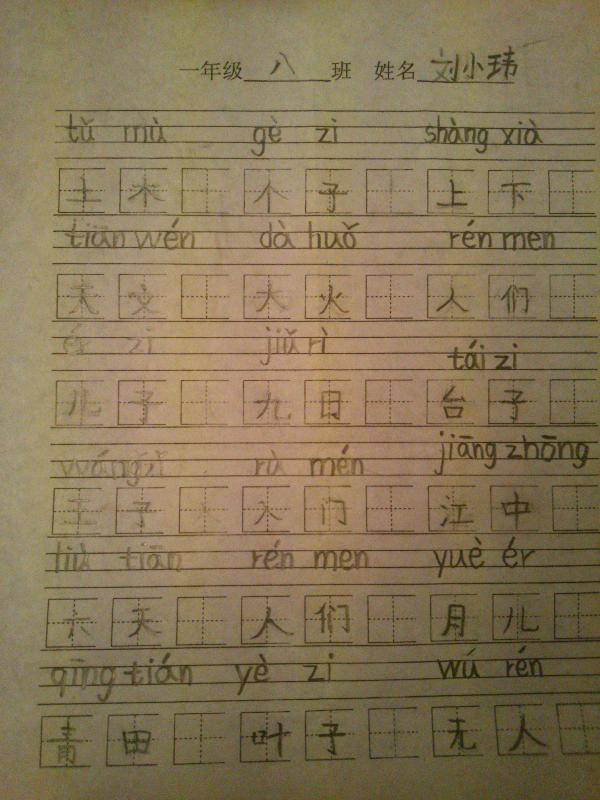 一年级 八 班 姓名 刘小玮
tǔ mù gè zi shàng xià
土 木 个 子 上 下
tiān wén dà huǒ rén men
天 文 大 火 人 们
ér zi jiǔ rì tái zi
儿 子 九 日 台 子
wáng zǐ rù mén jiāng zhōng
王 子 入 门 江 中
liù tiān rén men yuè ér
六 天 人 们 月 儿
qīng tián yè zi wú rén
青 田 叶 子 无 人